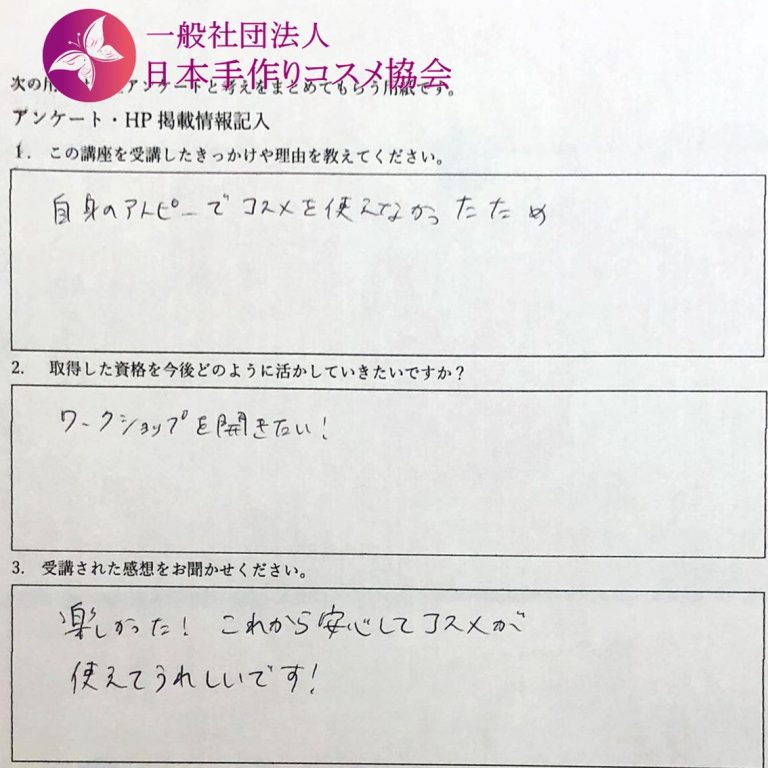 一般社団法人
日本手作りコスメ協会
アンケートと考えをまとめてもらう用紙です。
アンケート・HP 掲載情報記入
1. この講座を受講したきっかけや理由を教えてください。
自身のアトピーでコスメを使えなかったため
2. 取得した資格を今後どのように活かしていきたいですか？
ワークショップを開きたい！
3. 受講された感想をお聞かせください。
楽しかった！これから安心してコスメが
使えてうれしいです！